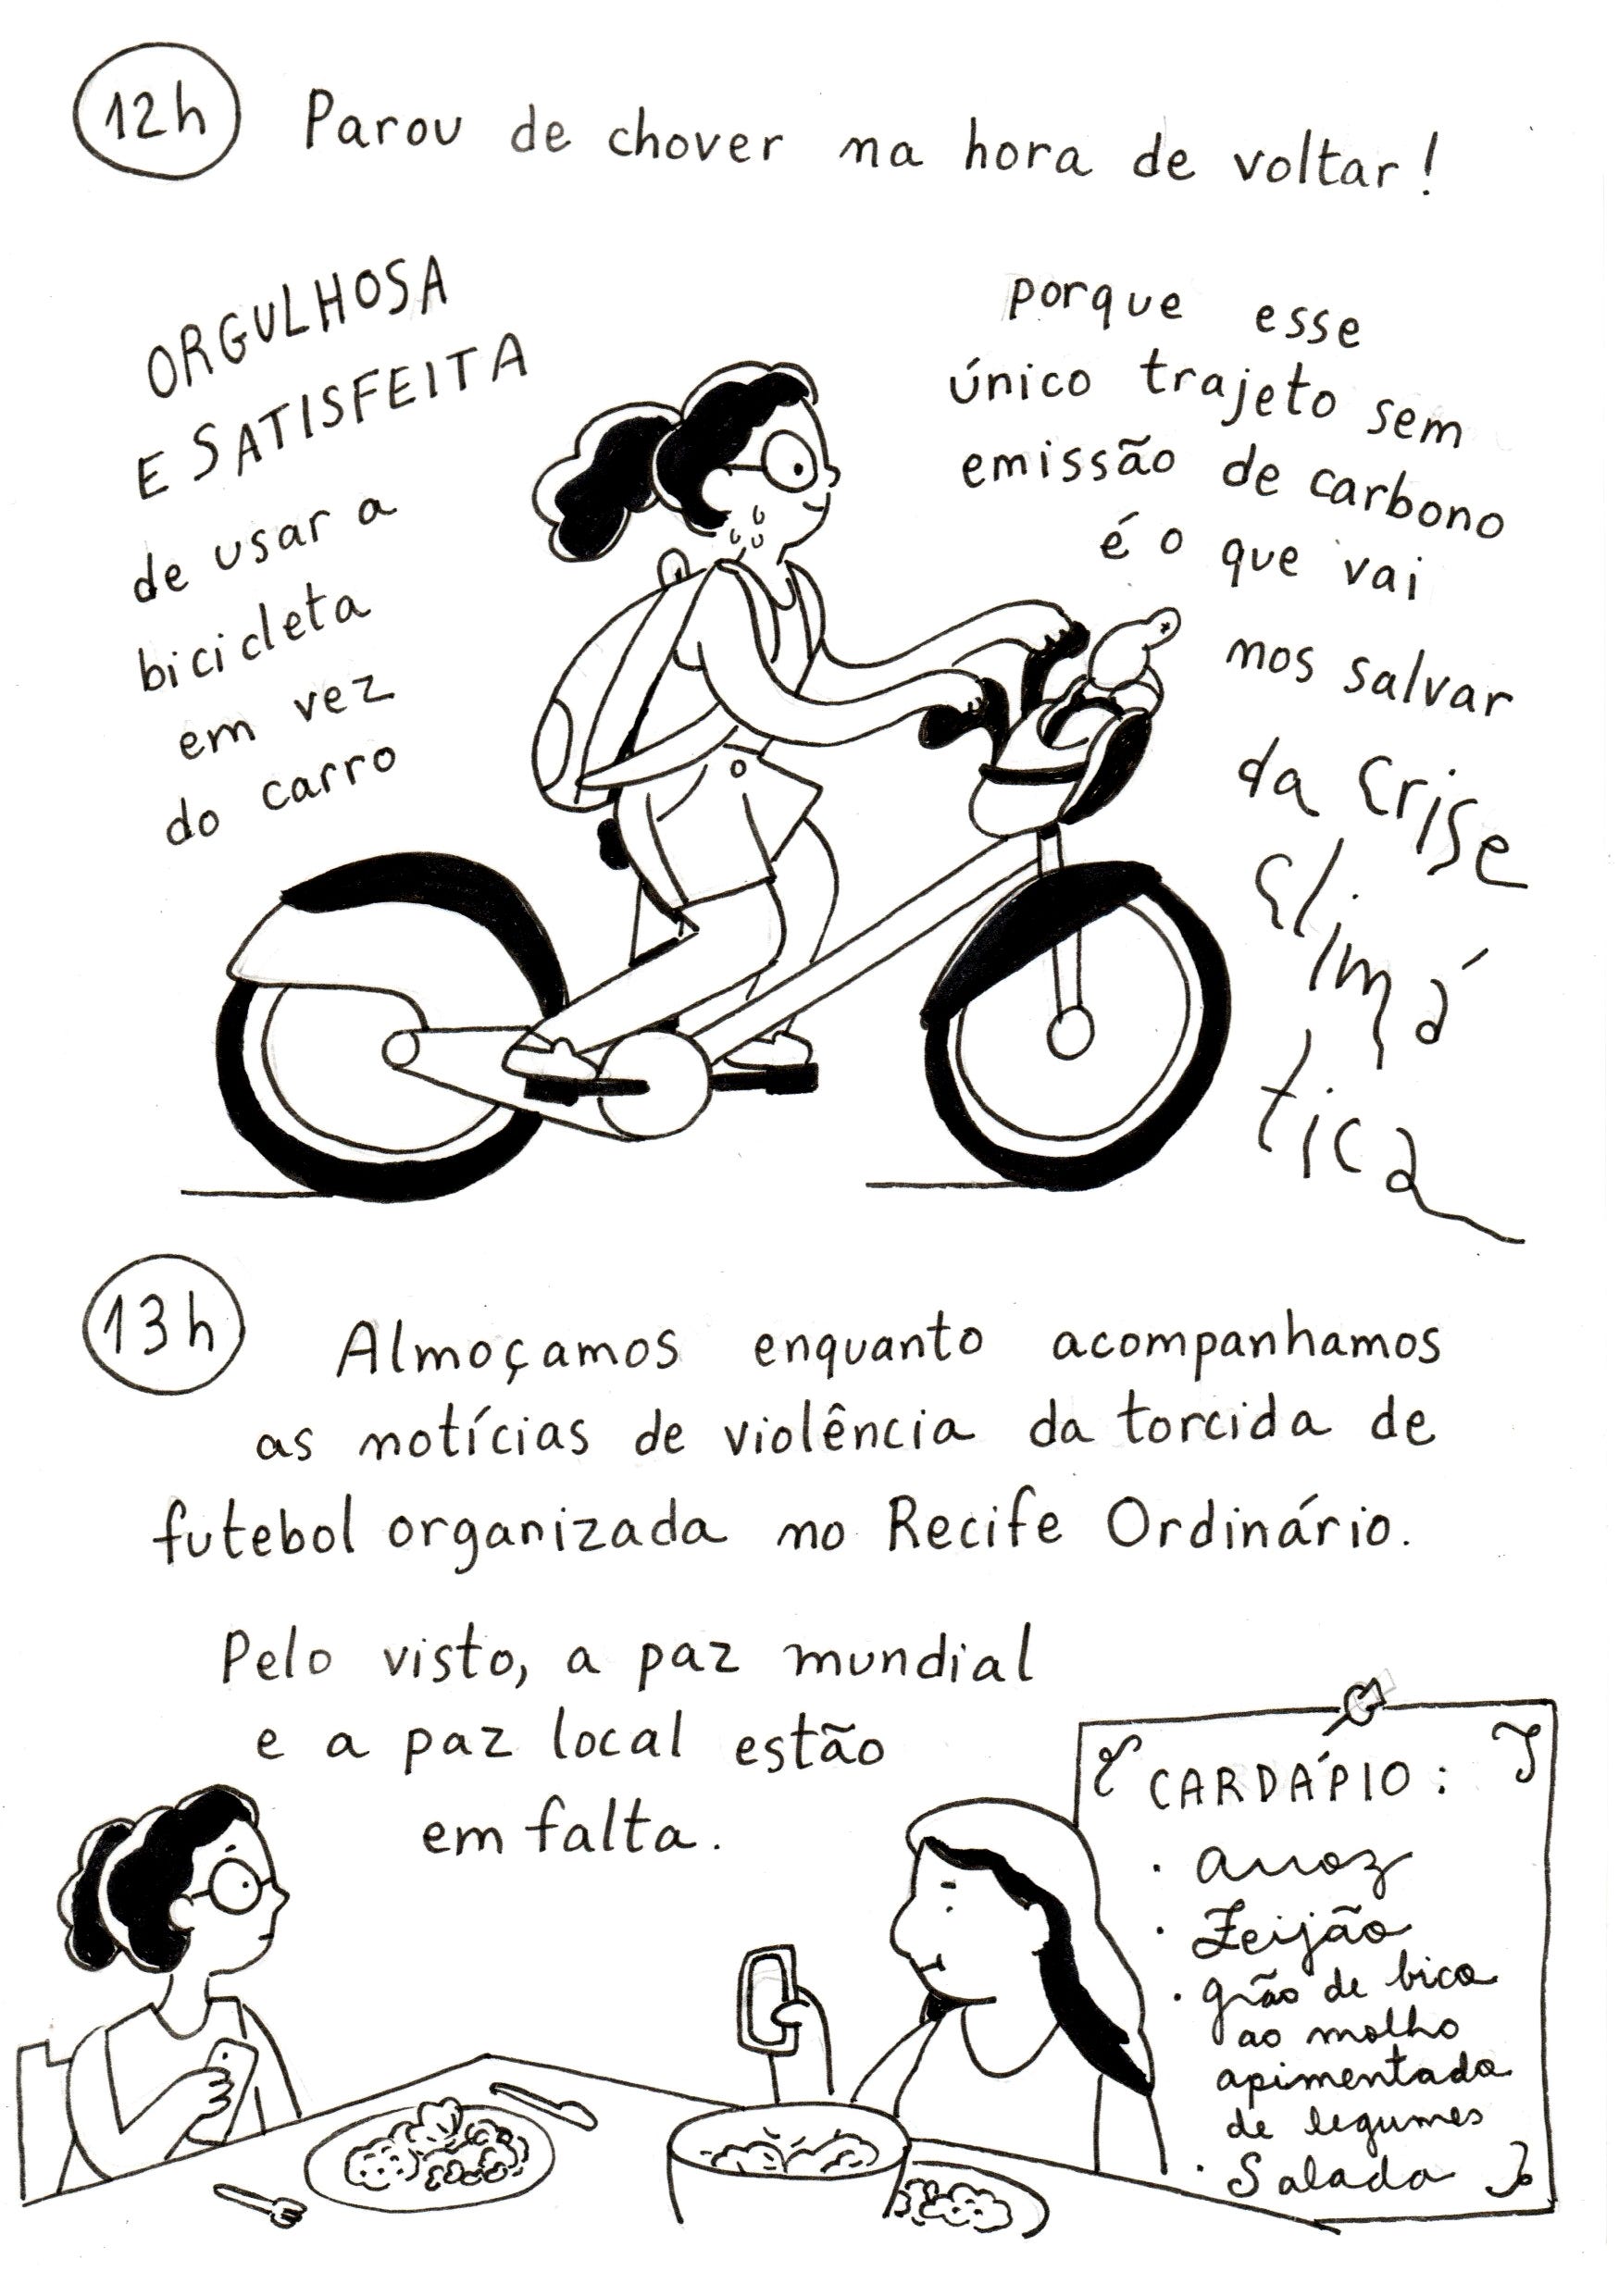 12h
Parou de chover na hora de voltar!
ORGULHOSA
E SATISFEITA
de usar a
bicicleta
em vez
do carro
porque esse
único trajeto sem
emissão de carbono
é o que vai
nos salvar
da crise
climá
tica
13h
Almoçamos enquanto acompanhamos
as notícias de violência da torcida de
futebol organizada no Recife Ordinário.
Pelo visto, a paz mundial
e a paz local estão
em falta.
CARDÁPIO:
· arroz
· Feijão
· grão de bico
ao molho
apimentado
de legumes
· Salada